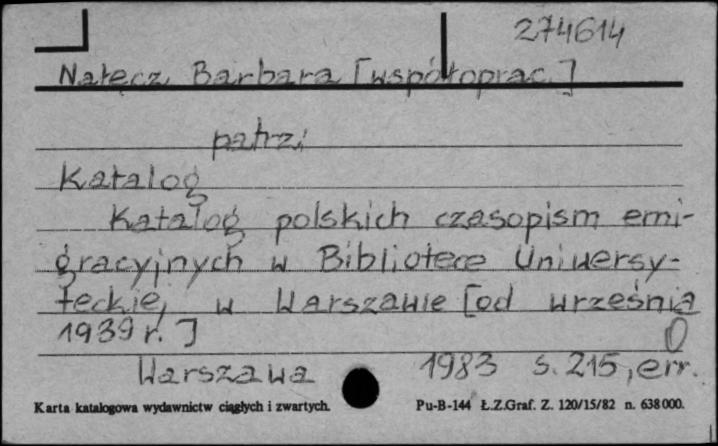 274614
Nałęcz Barbara [współoprac.]
patrz:
Katalog
Katalog polskich czasopism emi-
gracyjnych w Bibliotece Uniwersy-
teckiej w Warszawie [od września
1939 r.]
Warszawa 1983 s. 215, err.
Karta katalogowa wydawnictw ciągłych i zwartych. Pu-B-144 Ł.Z.Graf. Z. 120/15/82 n. 638000.